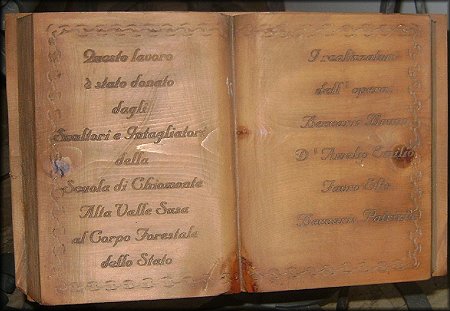 Questo lavoro
è stato donato
dagli
Scultori e Intagliatori
della
Scuola di Chiomonte
Alta Valle Susa
al Corpo Forestale
dello Stato
I realizzatori
dell' opera:
Bruno
D' Aurelio Emilio
Favro Elio